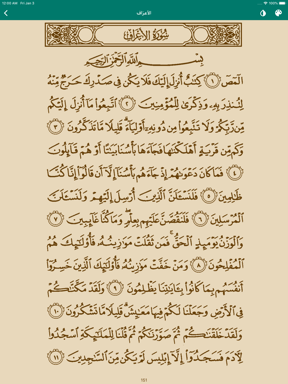 الأعراف
سُورَةُ الأَعْرَافِ
بِسْمِ ٱللَّهِ ٱلرَّحْمَٰنِ ٱلرَّحِيمِ
الٓمٓصٓ ١ كِتَٰبٌ أُنزِلَ إِلَيْكَ فَلَا يَكُن فِى صَدْرِكَ حَرَجٌ مِّنْهُ
لِتُنذِرَ بِهِۦ وَذِكْرَىٰ لِلْمُؤْمِنِينَ ٢ ٱتَّبِعُوا۟ مَآ أُنزِلَ إِلَيْكُم
مِّن رَّبِّكُمْ وَلَا تَتَّبِعُوا۟ مِن دُونِهِۦٓ أَوْلِيَآءَ ۗ قَلِيلًا مَّا تَذَكَّرُونَ ٣
وَكَم مِّن قَرْيَةٍ أَهْلَكْنَٰهَا فَجَآءَهَا بَأْسُنَا بَيَٰتًا أَوْ هُمْ قَآئِلُونَ
٤ فَمَا كَانَ دَعْوَىٰهُمْ إِذْ جَآءَهُم بَأْسُنَآ إِلَّآ أَن قَالُوٓا۟ إِنَّا كُنَّا
ظَٰلِمِينَ ٥ فَلَنَسْـَٔلَنَّ ٱلَّذِينَ أُرْسِلَ إِلَيْهِمْ وَلَنَسْـَٔلَنَّ
ٱلْمُرْسَلِينَ ٦ فَلَنَقُصَّنَّ عَلَيْهِم بِعِلْمٍ ۖ وَمَا كُنَّا غَآئِبِينَ ٧
وَٱلْوَزْنُ يَوْمَئِذٍ ٱلْحَقُّ ۚ فَمَن ثَقُلَتْ مَوَٰزِينُهُۥ فَأُو۟لَٰٓئِكَ هُمُ
ٱلْمُفْلِحُونَ ٨ وَمَنْ خَفَّتْ مَوَٰزِينُهُۥ فَأُو۟لَٰٓئِكَ ٱلَّذِينَ خَسِرُوٓا۟
أَنفُسَهُم بِمَا كَانُوا۟ بِـَٔايَٰتِنَا يَظْلِمُونَ ٩ وَلَقَدْ مَكَّنَّٰكُمْ
فِى ٱلْأَرْضِ وَجَعَلْنَا لَكُمْ فِيهَا مَعَٰيِشَ ۗ قَلِيلًا مَّا تَشْكُرُونَ ١٠
وَلَقَدْ خَلَقْنَٰكُمْ ثُمَّ صَوَّرْنَٰكُمْ ثُمَّ قُلْنَا لِلْمَلَٰٓئِكَةِ ٱسْجُدُوا۟
لِـَٔادَمَ فَسَجَدُوٓا۟ إِلَّآ إِبْلِيسَ لَمْ يَكُن مِّنَ ٱلسَّٰجِدِينَ ١١
151